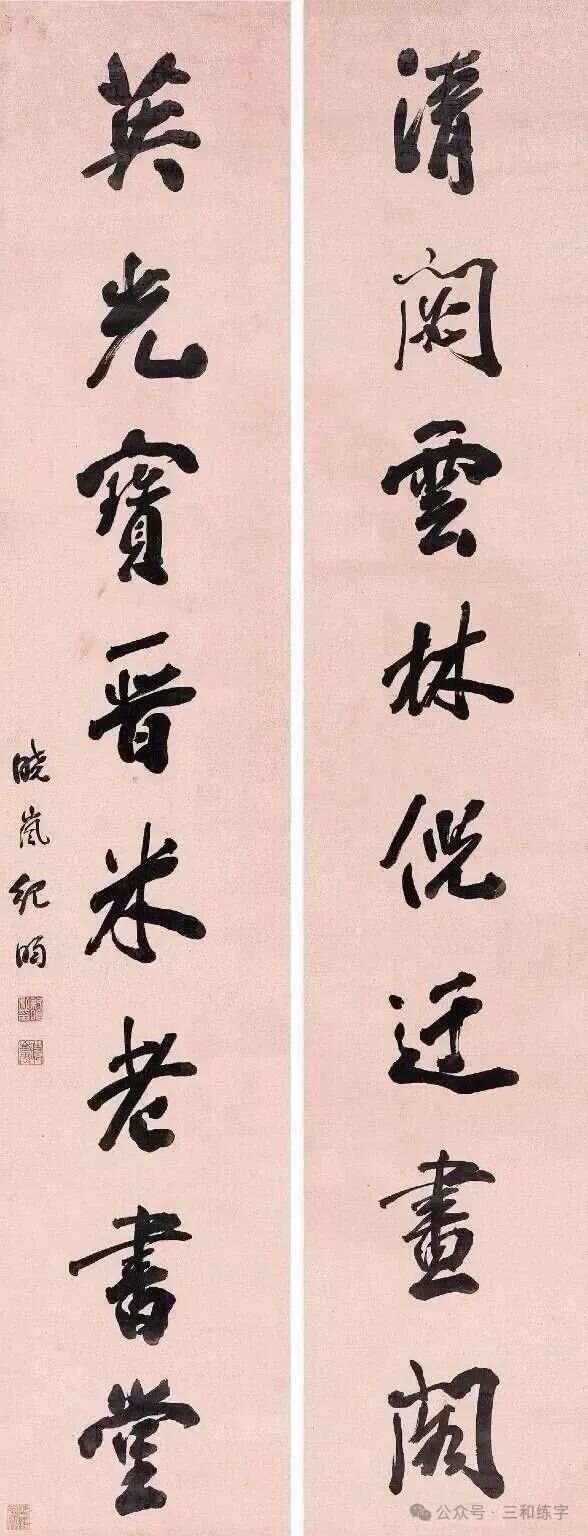 清閟雲林倪迂畫閣
英光寶晉米老書堂
曉嵐紀昀
公众号 · 三和练字